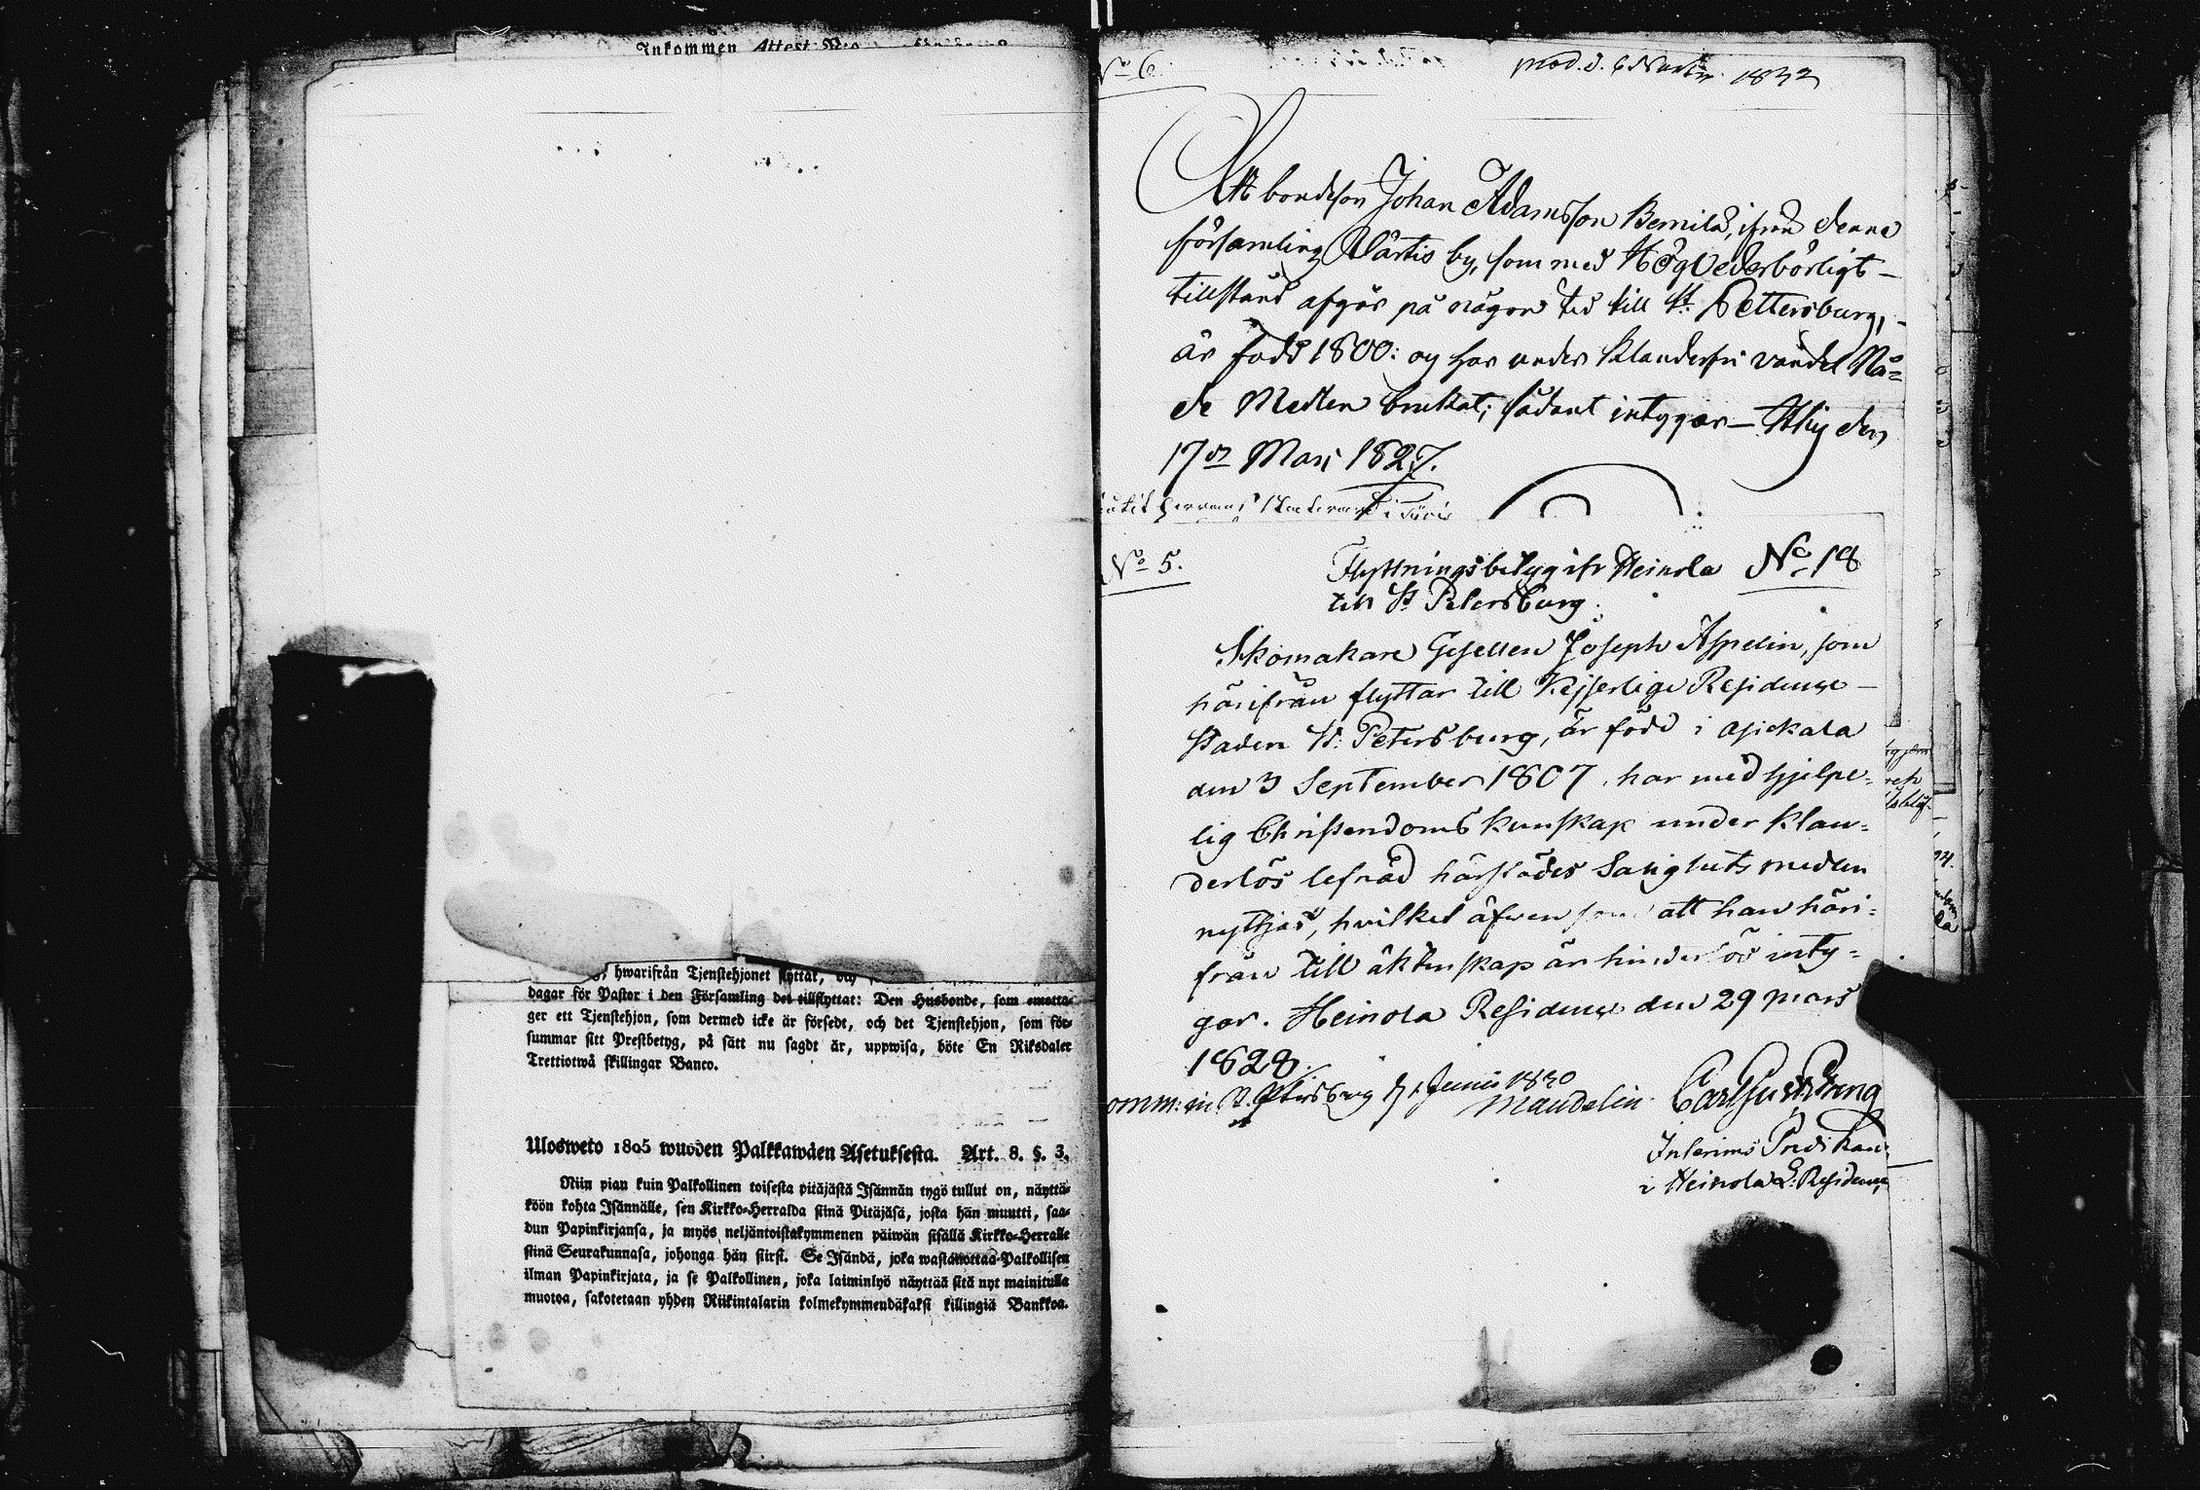 Inkommen Attest
hwarifrån Tjenstehjonet flyttat, och
dagar för Pastor i den Församling det tillflyttat: Den Husbonde, som emotta-
ger ett Tjenstehjon, som dermed icke är försedt, och det Tjenstehjon, som för-
summar sitt Prestbetyg, på sätt nu sagdt är, uppwisa, böte En Riksdaler
Trettiotwå skillingar Banco.
Ulosweto 1805 wuoden Palkkawäen Asetuksesta. Art. 8. §. 3.
Niin pian kuin Palkollinen toisesta pitäjästä Isännän tygö tullut on, näyttä-
köön kohta Isännälle, sen Kirkko-Herralda siinä Pitäjäsä, josta hän muutti, saa-
dun Papinkirjansa, ja myös neljäntoistakymmenen päiwän sisällä Kirkko-Herralle
siinä Seurakunnasa, johonga hän siirsi. Se Isändä, joka wastanottaa Palkollisen
ilman Papinkirjata, ja se Palkollinen, joka laiminlyö näyttää sitä nyt mainitulla
muotoa, sakotetaan yhden Riikintalarin kolmekymmendäkaksi killingiä Bankkoa.
No 6. prod. d. 6 1832
Att bondeson Johan Adamsson Bemild, ifrån denna
församling Wärtis by, som med Högvederbörligt
tillstånd afgår på någon tid till St. Pettersburg,
är född 1800: og har under klanderfri vandel Nå=
de Medlen brukat; sådant intygar Itis den
17de Mars 1827.
No 5. Flyttningsbetyg ifr Heinola No 18
till St Petersburg.
Skomakare Gesellen Joseph Aspelin, som
härifrån flyttar till Kejserliga Residence
staden St: Petersburg, är född i Asickala
den 3 September 1807, har med hjelpe=
lig Christendoms kunskap under klan=
derlös lefnad härstädes Salighets medlen
nyttjat, hvilket äfwen som att han häri=
från till äktenskap är hinderlös inty=
gar. Heinola Residence den 29 Mars
1828.
omm: in St. Petersburg d 1 Junii 1830
Mandelin Carl Gust Strang
Interims Predikan
i Heinola L. Residence